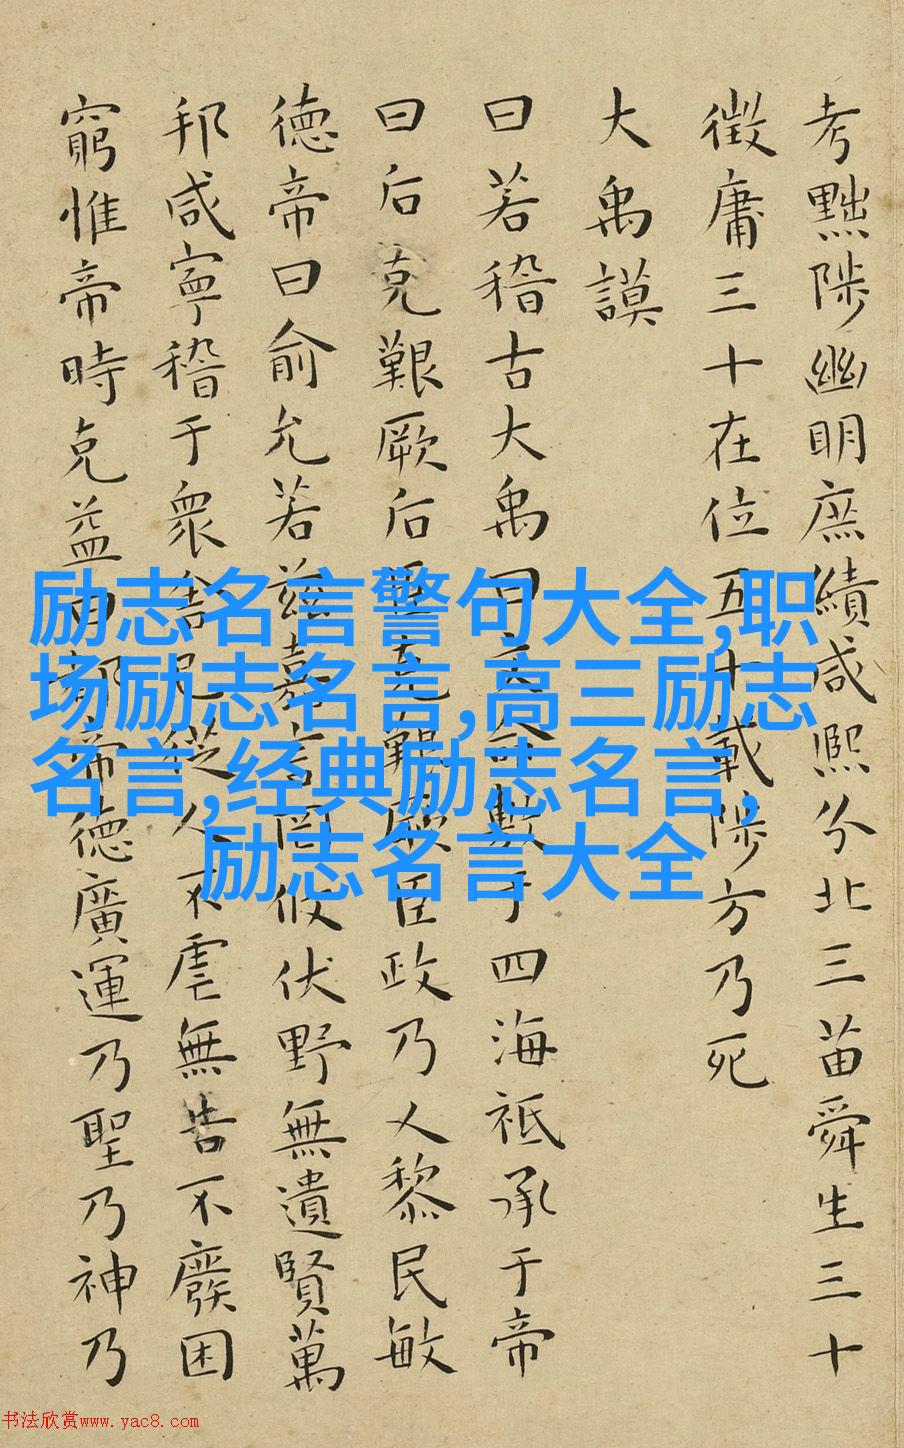 考黜陟幽明庶績咸熙分北三苗舜生三十
徵庸三十在位五十載陟方乃死
大禹謨
曰若稽古大禹曰文命敷于四海祗承于帝
曰后克艱厥后臣克艱厥臣政乃乂黎民敏
德帝曰俞允若茲嘉言罔攸伏野無遺賢萬
邦咸寧稽于衆舍己從人不虐無告不廢困
窮惟帝時克益曰都帝德廣運乃聖乃神乃
励志名言警句大全,职
场励志名言,高三励志
名言,经典励志名言,
励志名言大全
书法欣赏www.yac8.com